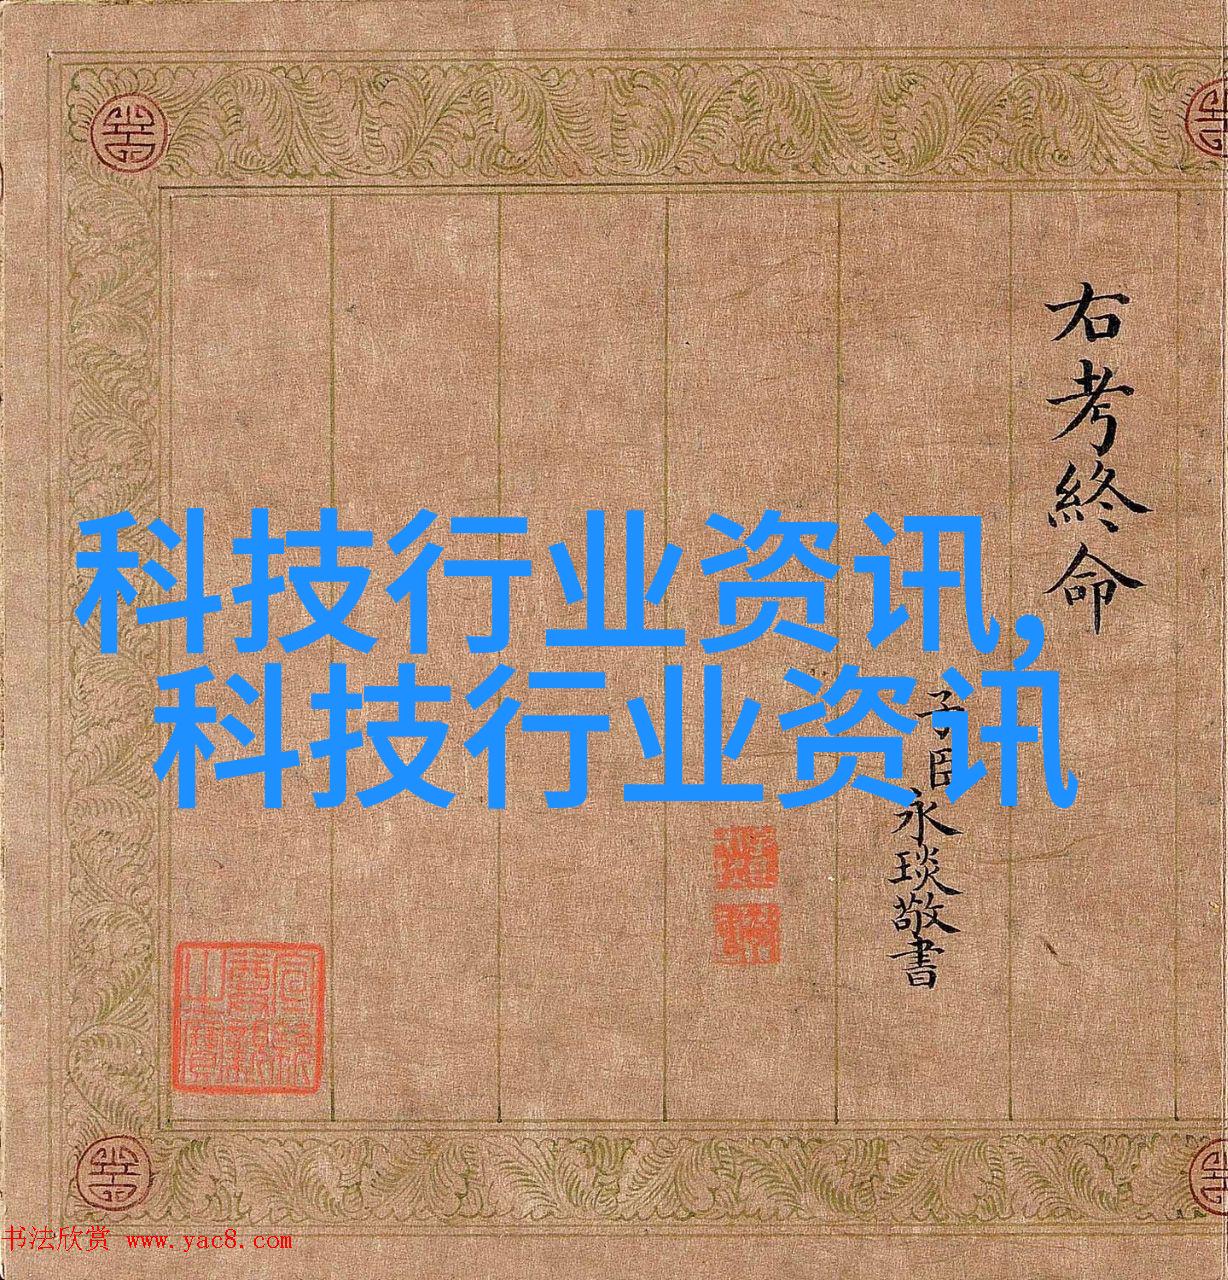 右考終命
子臣永琰敬書
科技行业资讯,
科技行业资讯
书法欣赏 www.yac8.com